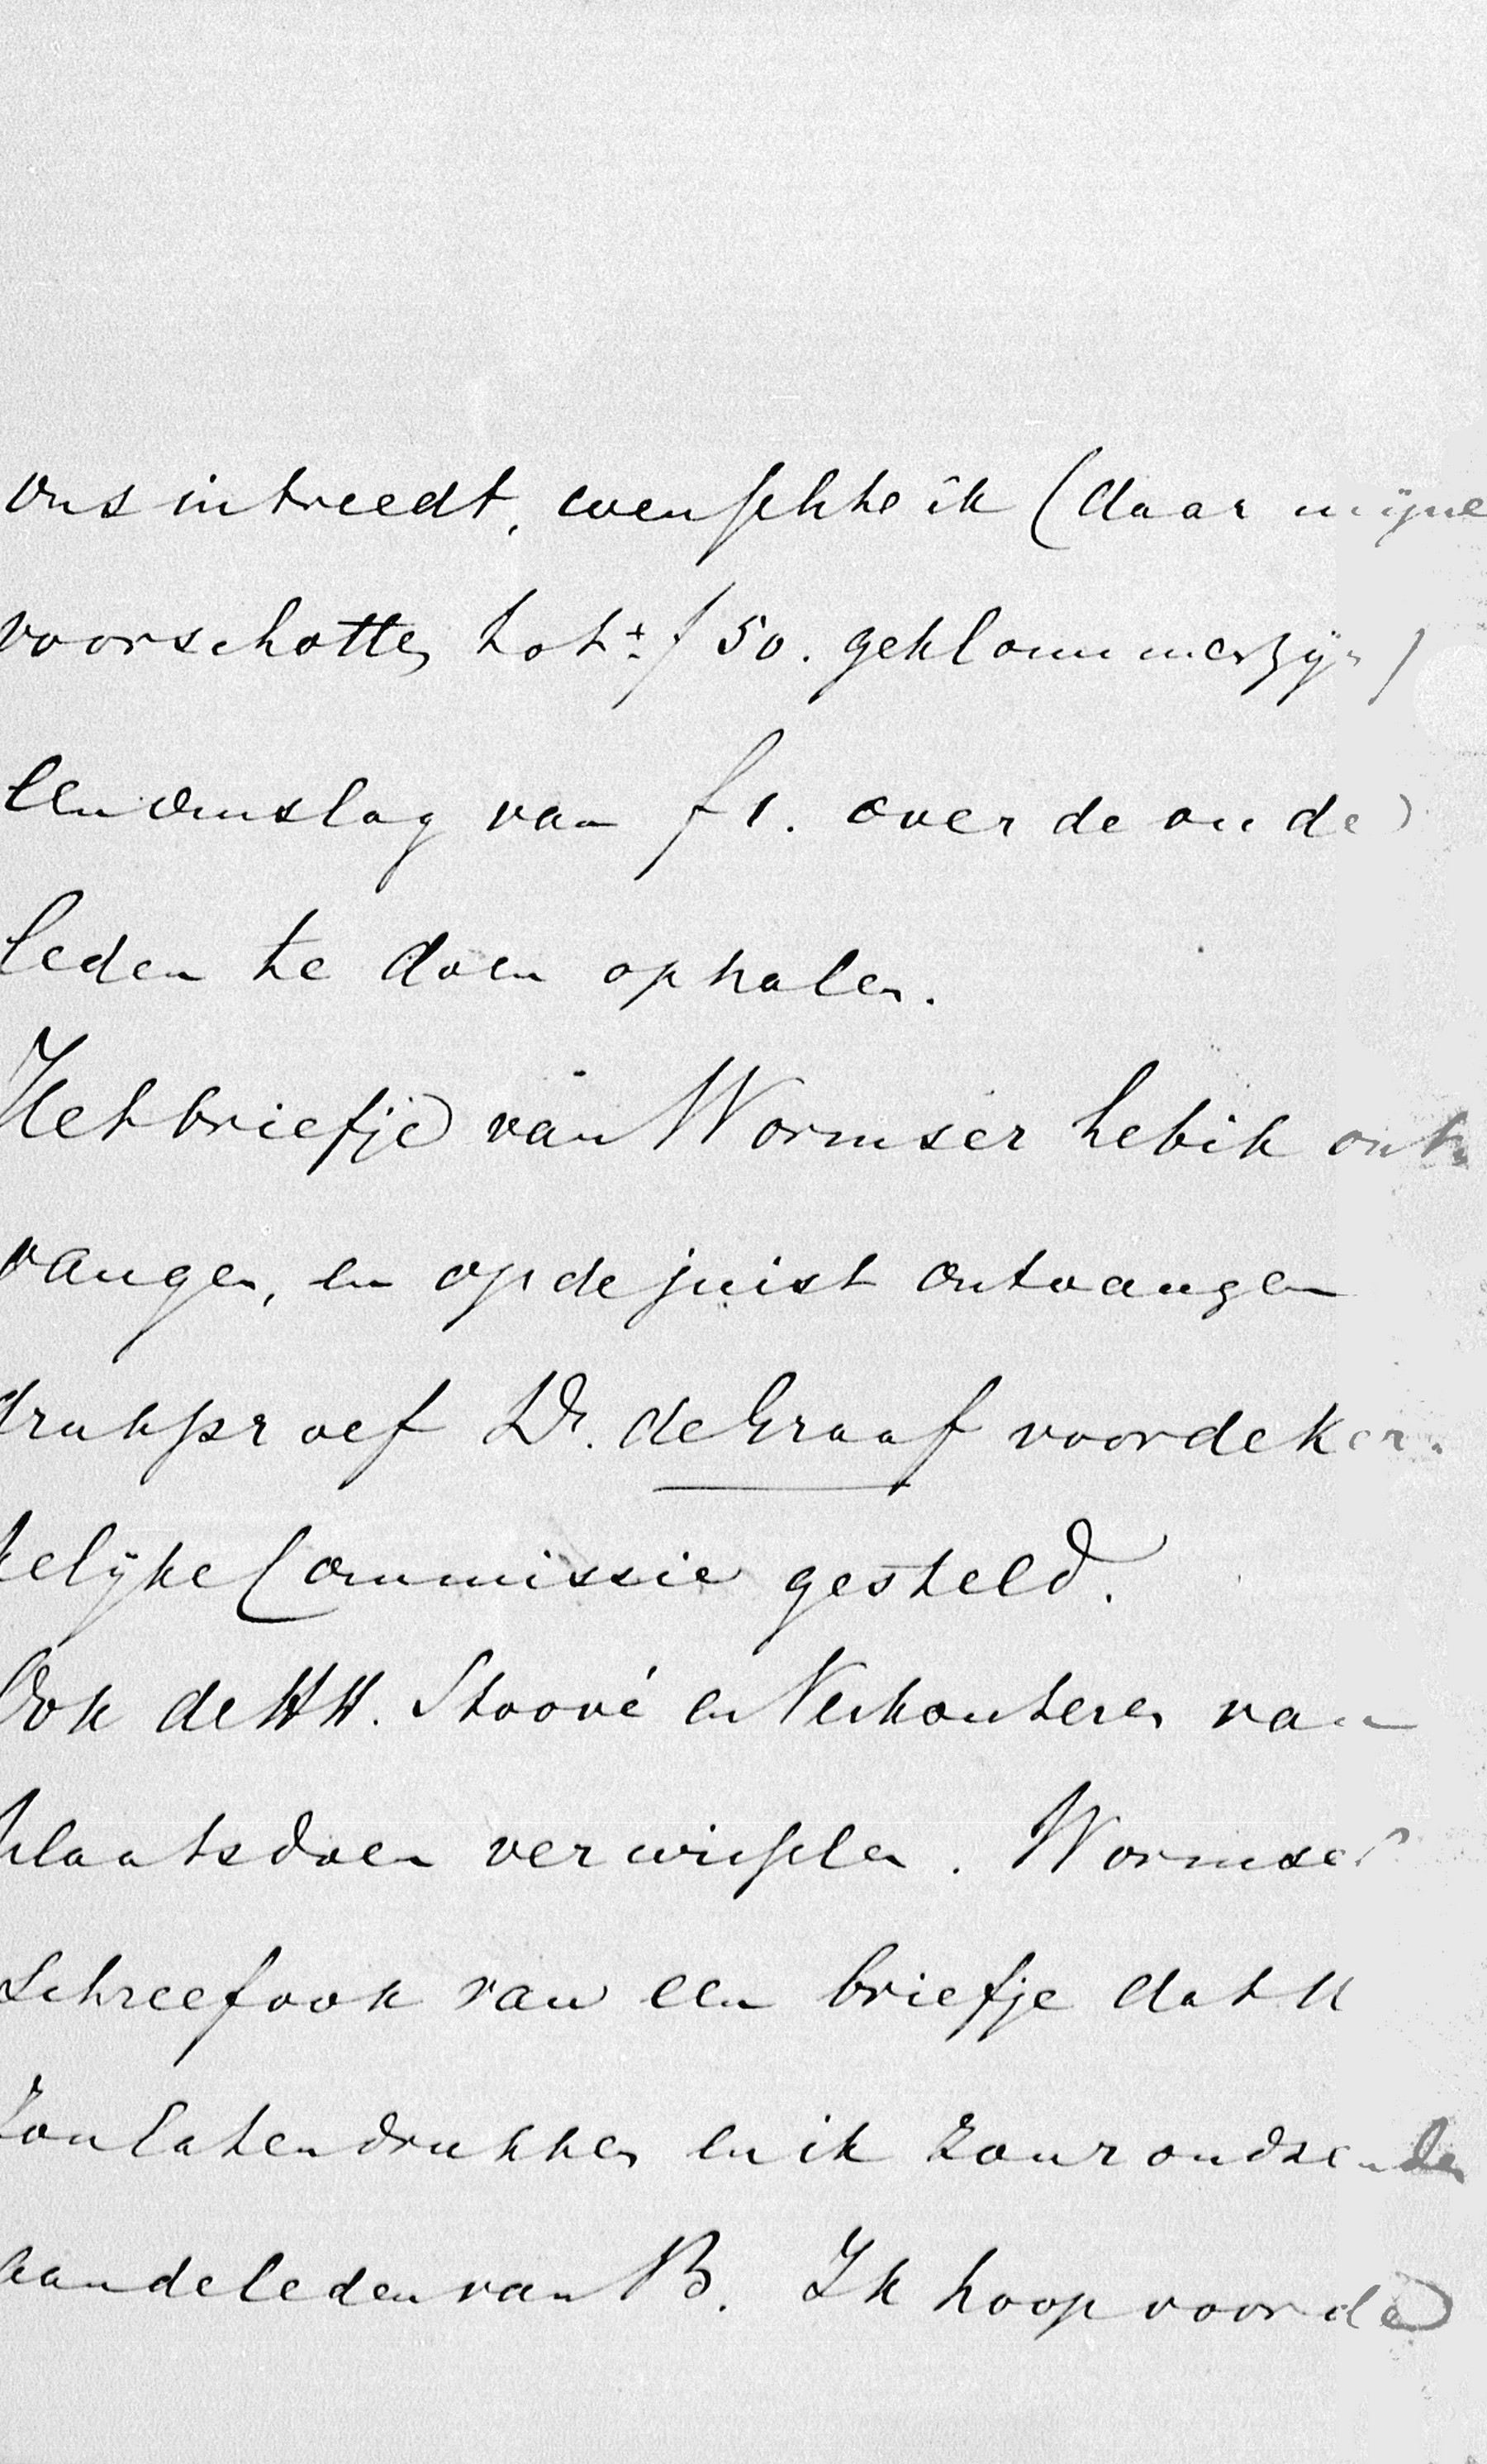 ons intreedt, wenschte ik (daar mijne
voorschotten tot ± f 50. geklommen zijn)
een omslag van f 1. over de oude
leden te doen ophalen.
Het briefje van Wormser heb ik ont-
vangen, en op de juist ontvangen
drukproef Dr. de Graaf voor de Ker-
kelijke Commissie gesteld.
Ook de HH. Stoové en Verhouteren van
plaats doen verwisselen. Wormser
schreef ook van een briefje dat U
zou laten drukken en ik zou rondzenden
aan de leden van B. Ik hoop voor de